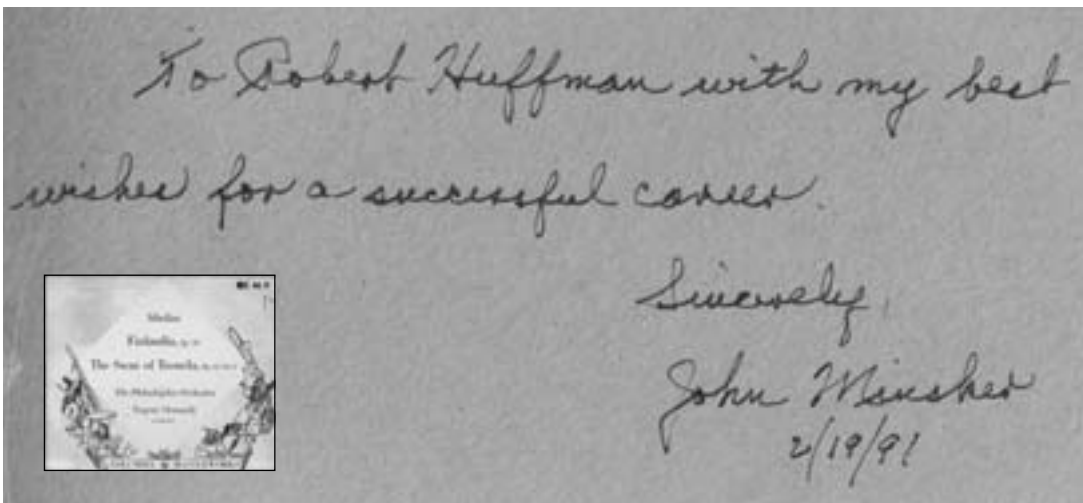 To Robert Huffman with my best
wishes for a successful career.
Sincerely,
John Minsker
2/19/91
Sibelius
Finlandia,
The Swan of Tuonela,
The Philadelphia Orchestra
Eugene Ormandy